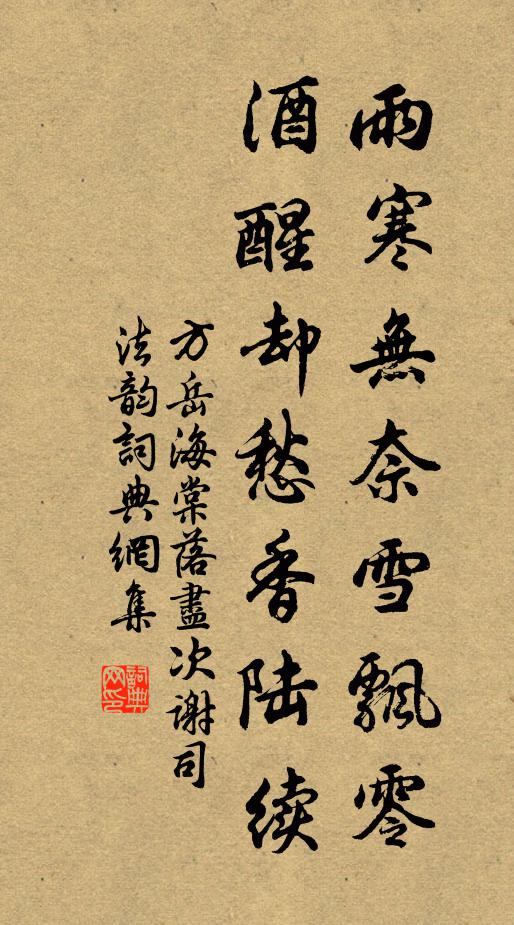 雨寒無奈雪飄零
酒醒却愁香陆续
方岳海棠落盡次谢司
法韵詞典網集
詞典网印